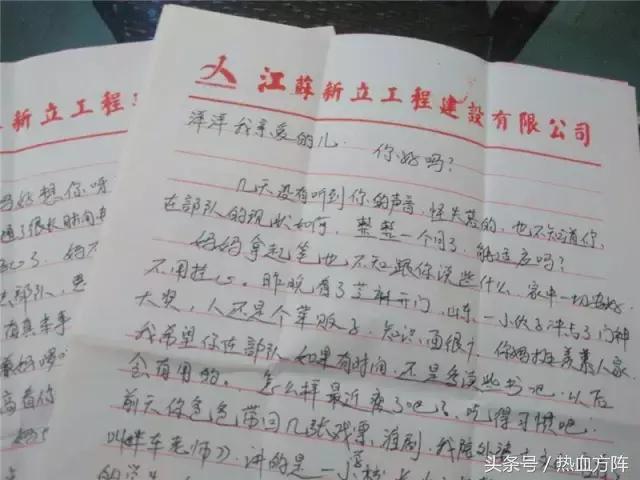 江蘇新立工程建設有限公司
洋洋我亲爱的儿. 你好吗?
几天没有听到你的声音, 怪失落的, 也不知道你,
在部队的现状如何, 整整一个月了, 能适应吗?
妈妈拿起笔也不知跟你谈些什么, 家中一切安好
不用挂心. 昨晚看了芝麻开门, 山东一小伙子冲击了门神
大奖, 人还是个菜贩子, 知识面很广, 你妈挺羡慕人家.
我希望你在部队如果有时间, 还是多读些书吧, 以后
会有用的. 怎么样最近瘦了吧, 吃得习惯吧.
前天你爸爸带回几张戏票, 淮剧, 我陪外婆
叫胖车老师》. 讲的是一
新立工程
妈好想你呀
很长时间
了. 妈不
部队,
有真本事
高看你
头条号 / 热血方阵